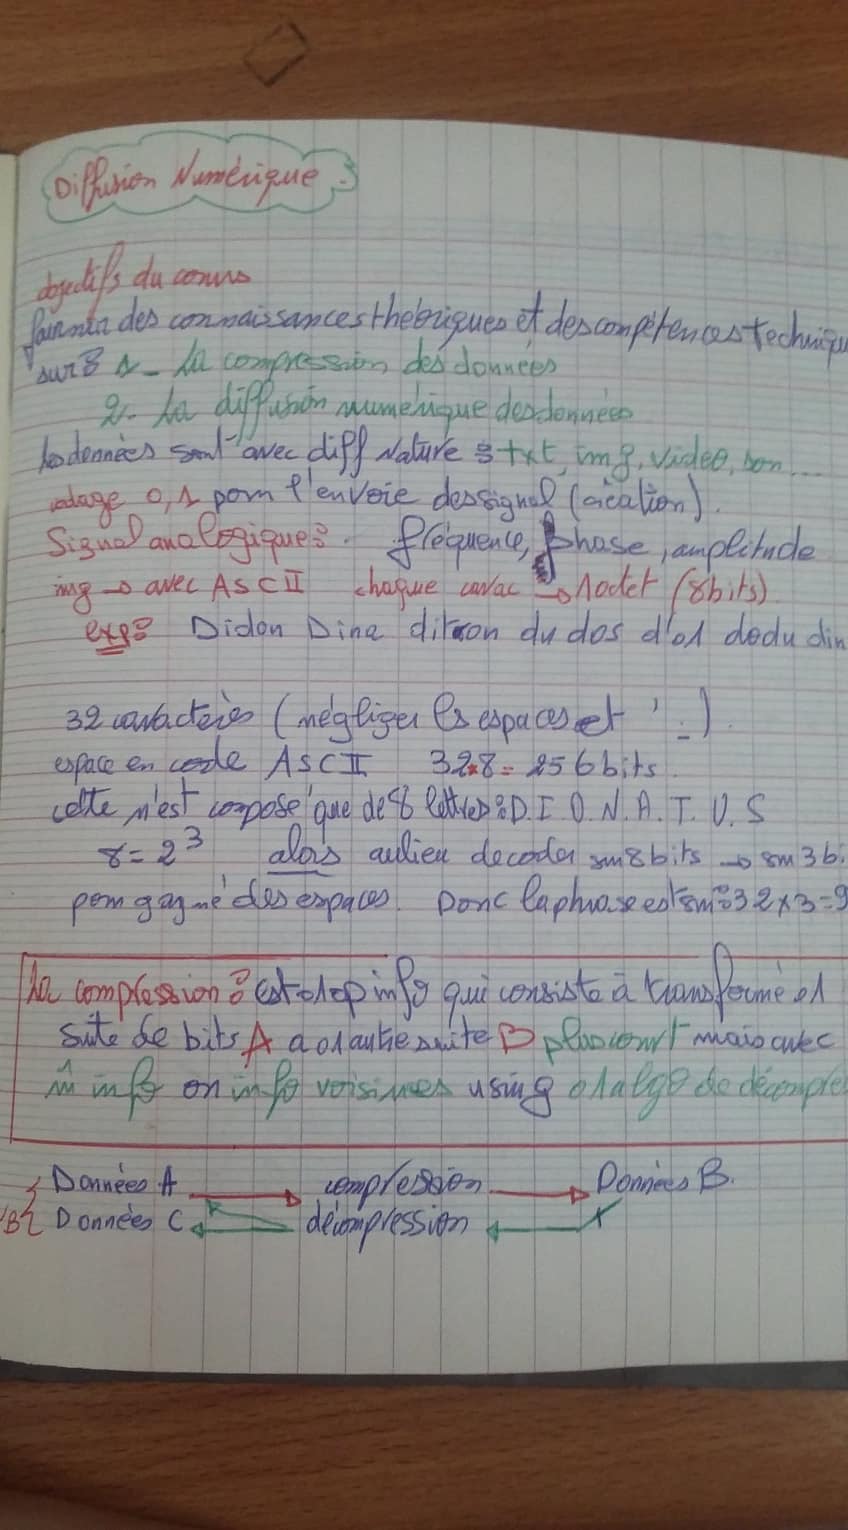 Diffusion Numérique :
objectifs du cours
fournir des connaissances thébriques et des compétences techniqu
sur : 1- La compression des données
2- La diffusion numérique des données
les données sont avec diff Nature : txt, img, video, son ...
codage 0,1 pour l'envoie des signal (création).
Signal analogique : fréquence, phase, amplitude
img → avec ASCII chaque carac → 1octet (8bits)
exp : Didon Dina dit on du dos d'01 dodu din
32 caractères ( négliger ls espaces et ' - ).
espace en code ASCII 32*8 = 256 bits.
cette n'est composé que de 8 lettres : D. I. O. N. A. T. U. S
8 = 2^3 alors aulieu decoder sur 8 bits → sur 3 bi
pour gagné des espaces. Donc la phrase est sur : 32 x 3 = 9
La compression : est 01 op info qui consiste à transformé 01
suite de bits A a 01 autre suite B plus court mais avec
m̂ info on info voisines using 01 algo de décompre
Données A → compression → Données B.
Données C ← décompression ←